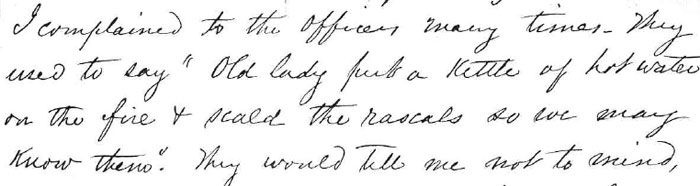 I complained to the Officers many times - They
used to say " Old lady put a Kettle of hot water
on the fire & scald the rascals so we may
Know them". They would tell me not to mind,